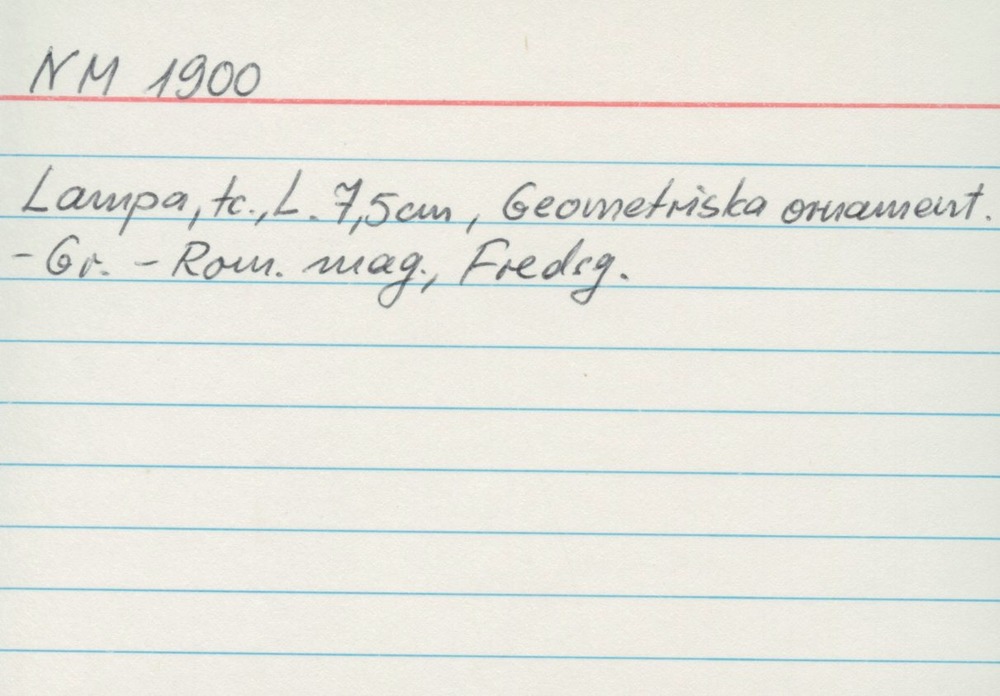 NM 1900
Lampa, tc., L. 7,5cm, Geometriska ornament.
- Gr. - Rom. mag., Fredsg.